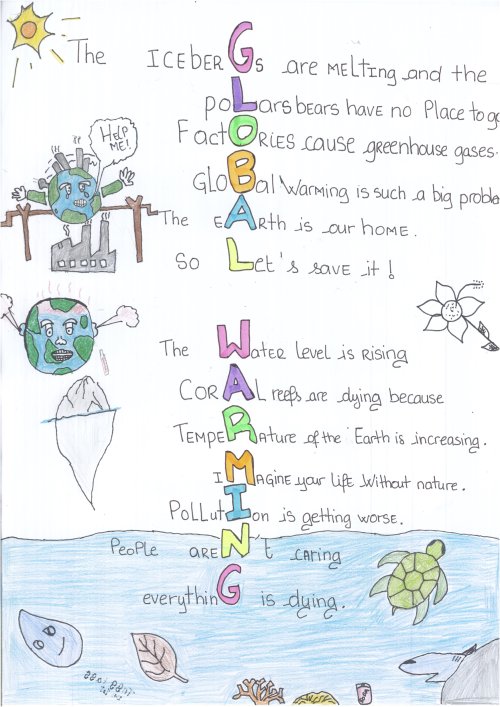 The ICEberGs are MELTING and the
poLarsbears HAVE no Place to go
HELP
ME!
FactORIES cause greenhouse gases.
GLOBal Warming is such a big proble
The EARth is our HOME.
So Let's SAVE it!
The WatER level is RISING
CORAL reefs are dying because
TEMPERature of the Earth is increasing.
IMAGINE your Life Without nature.
PoLLutIon is getting worse.
PeoPLe AREN't CARing
everythinG is dying.